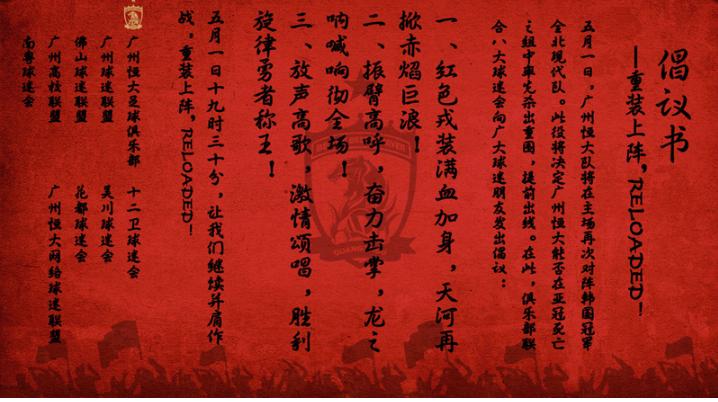 倡议书
—重装上阵，RELOADED！
五月一日，广州恒大队将在主场再次对阵韩国冠军
全北现代队。此役将决定广州恒大能否在亚冠死亡
之组中率先杀出重围，提前出线。在此，俱乐部联
合八大球迷会向广大球迷朋友发出倡议：
一、红色戎装满血加身，天河再
掀赤焰巨浪！
二、振臂高呼，奋力击掌，龙之
呐喊响彻全场！
三、放声高歌，激情颂唱，胜利
旋律勇者称王！
五月一日十九时三十分，让我们继续并肩作
战。重装上阵，RELOADED！
广州恒大足球俱乐部
十二卫球迷会
广州球迷联盟
吴川球迷会
佛山球迷联盟
花都球迷会
广州高校联盟
广州恒大网络球迷联盟
南粤球迷会